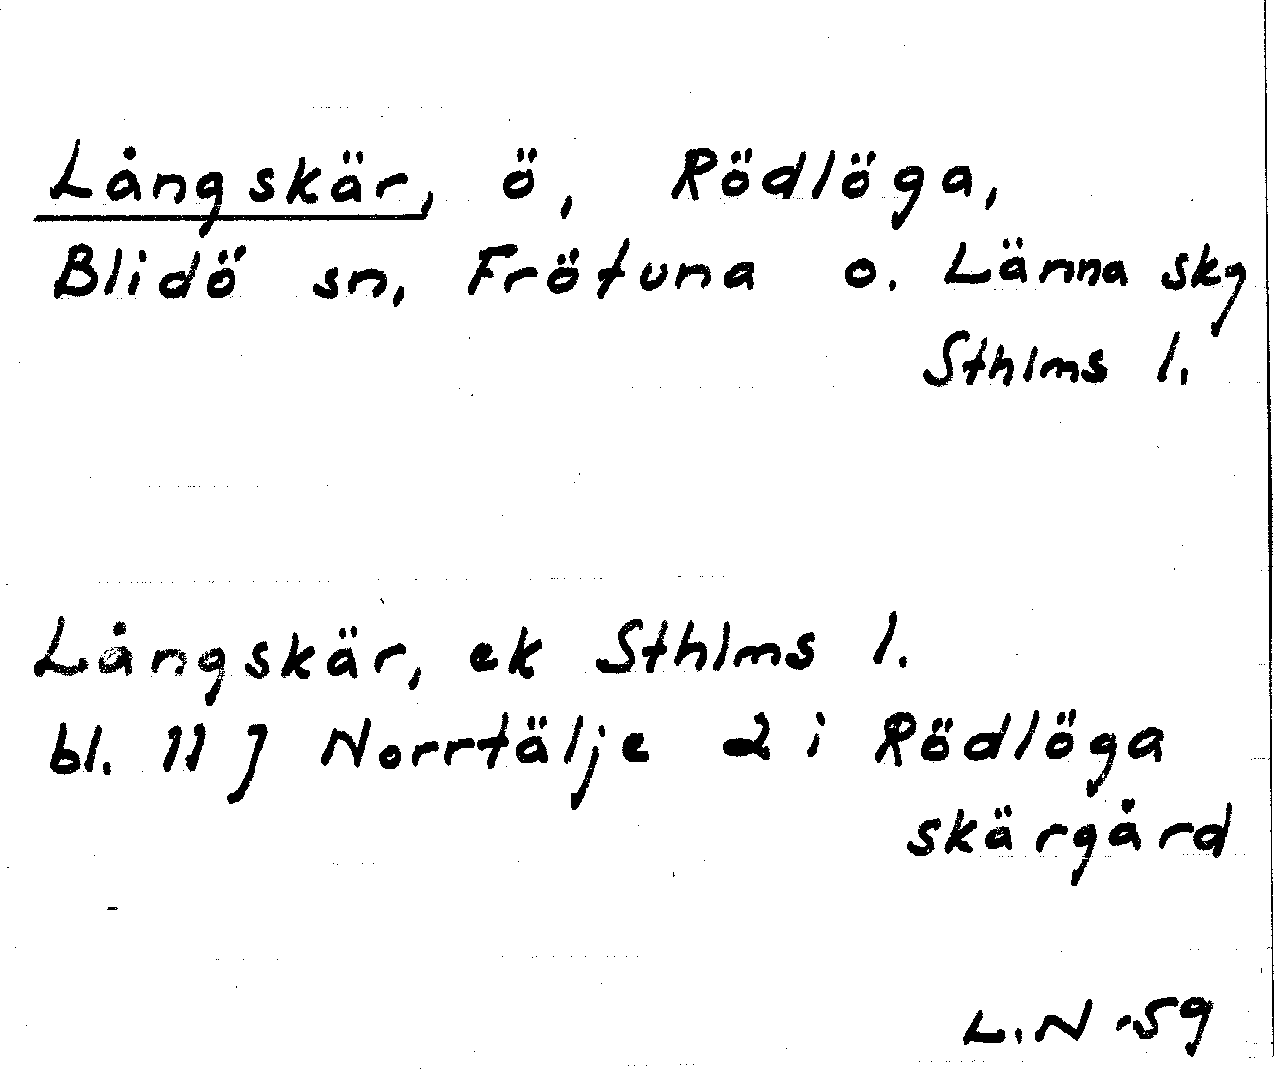 Långskär, ö, Rödlöga,
Blidö sn, Frötuna o. Länna skg
Sthlms l.
Långskär, ek Sthlms l.
bl. 11 J Norrtälje 2 i Rödlöga
skärgård
L.N -59